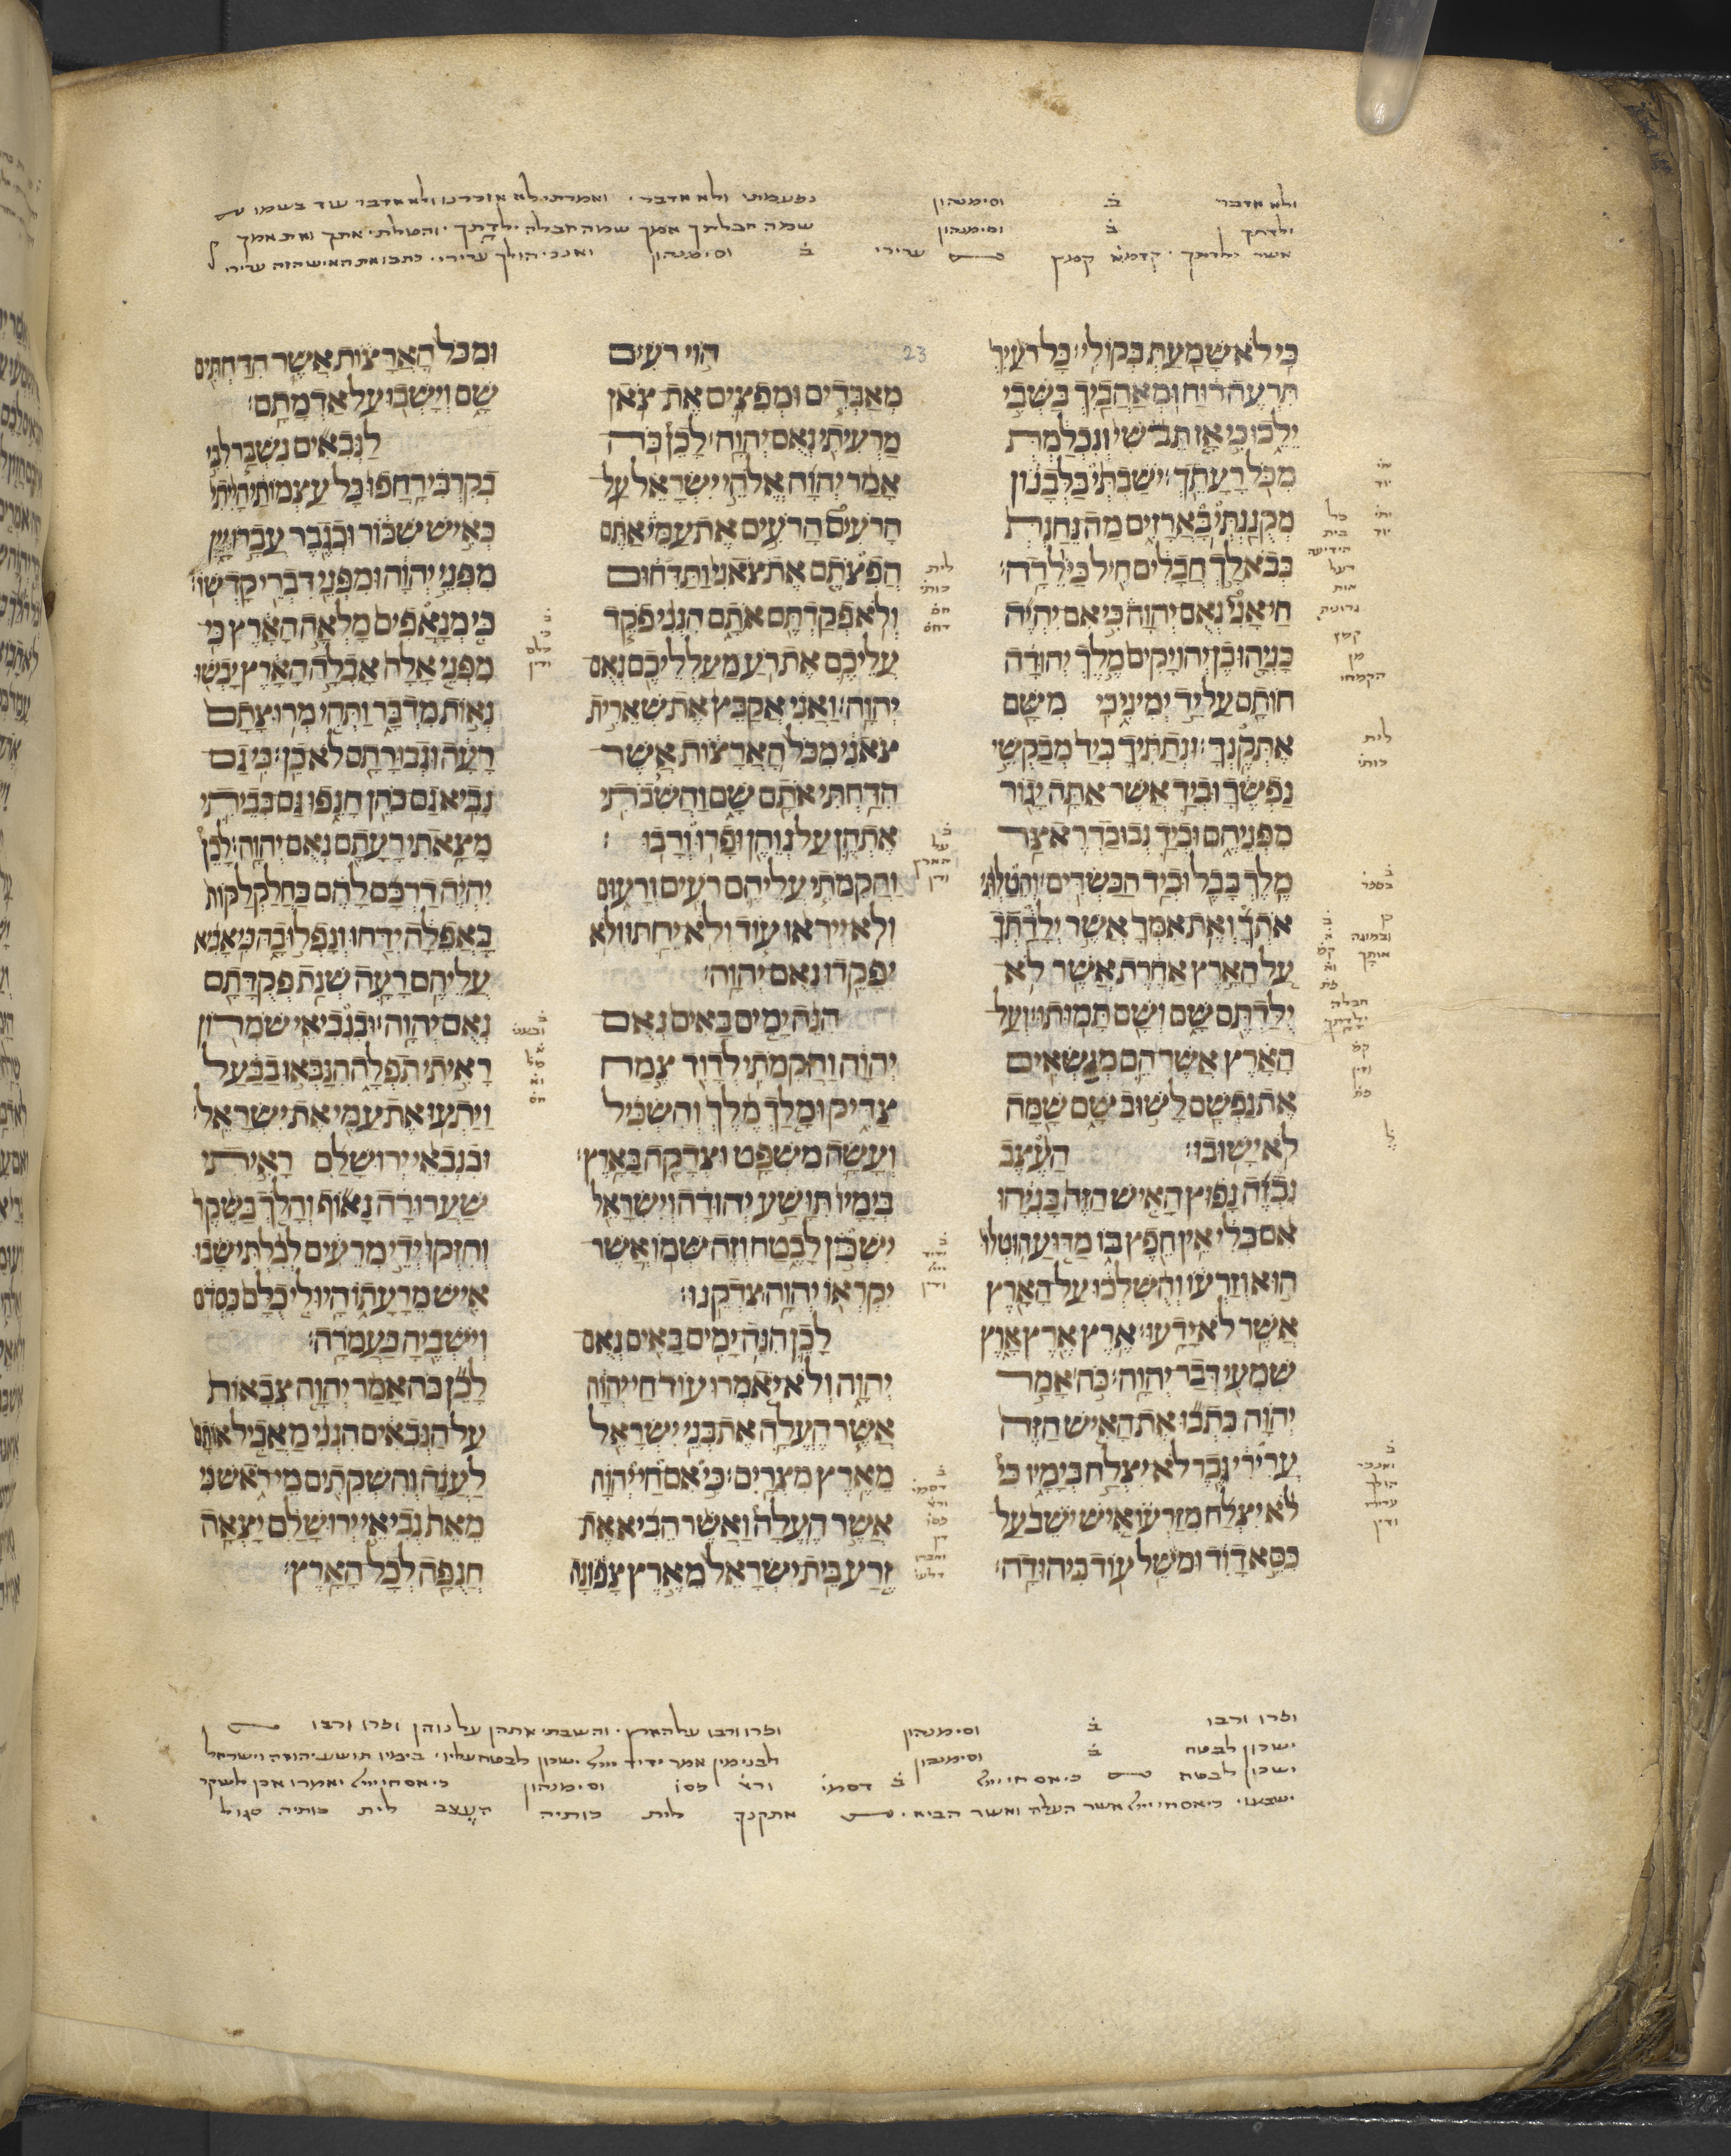 ולא אדבר ב וסימנהון נפעמתי ולא אדבר ואמרתי לא אזכרנו ולא אדבר עוד בשמו
ילדתך ב וסימנהון שמה חבלתך אמך שמה חבלה ילדתך והטלתי אתך ואת אמך
אשר ילדתך קדמא קמץ ערירי ב וסימנהון ואנכי הולך ערירי כתבו את האיש הזה ערירי
כי לא שמעת בקולי׃ כל רעיך
תרעה רוח ומאהביך בשבי
ילכו כי אז תבשי ונכלמת
מכל רעתך׃ ישבתי בלבנון
מקננתי בארזים מה נחנת
בבא לך חבלים חיל כילדה׃
חי אני נאם יהוה כי אם יהיה
כניהו בן יהויקים מלך יהודה
חותם על יד ימיני כי משם
אתקנך׃ ונתתיך ביד מבקשי
נפשך וביד אשר אתה יגור
מפניהם וביד נבוכדראצר
מלך בבל וביד הכשדים׃ והטלתי
אתך ואת אמך אשר ילדתך
על הארץ אחרת אשר לא
ילדתם שם ושם תמותו׃ ועל
הארץ אשר הם מנשאים
את נפשם לשוב שם שמה
לא ישובו׃ העצב
נבזה נפוץ האיש הזה כניהו
אם כלי אין חפץ בו מדוע הוטלו
הוא וזרעו והשלכו על הארץ
אשר לא ידעו׃ ארץ ארץ ארץ
שמעי דבר יהוה׃ כה אמר
יהוה כתבו את האיש הזה
ערירי גבר לא יצלח בימיו כי
לא יצלח מזרעו איש ישב על
כסא דוד ומשל עוד ביהודה׃
23
הוי רעים
מאבדים ומפצים את צאן
מרעיתי נאם יהוה׃ לכן כה
אמר יהוה אלהי ישראל על
הרעים הרעים את עמי אתם
הפצתם את צאני ותדחום
ולא פקדתם אתם הנני פקד
עליכם את רע מעלליכם נאם
יהוה׃ ואני אקבץ את שארית
צאני מכל הארצות אשר
הדחתי אתם שם והשבתי
אתהן על נוהן ופרו ורבו׃
והקמתי עליהם רעים ורעום
ולא ייראו עוד ולא יחתו ולא
יפקדו נאם יהוה׃
הנה ימים באים נאם
יהוה והקמתי לדוד צמח
צדיק ומלך מלך והשכיל
ועשה משפט וצדקה בארץ׃
בימיו תושע יהודה וישראל
ישכן לבטח וזה שמו אשר
יקראו יהוה צדקנו׃
לכן הנה ימים באים נאם
יהוה ולא יאמרו עוד חי יהוה
אשר העלה את בני ישראל
מארץ מצרים׃ כי אם חי יהוה
אשר העלה ואשר הביא את
זרע בית ישראל מארץ צפונה
ומכל הארצות אשר הדחתים
שם וישבו על אדמתם׃
לנבאים נשבר לבי
בקרבי רחפו כל עצמותי הייתי
כאיש שכור וכגבר עברו יין
מפני יהוה ומפני דברי קדשו׃
כי מנאפים מלאה הארץ כי
מפני אלה אבלה הארץ יבשו
נאות מדבר ותהי מרוצתם
רעה וגבורתם לא כן׃ כי גם
נביא גם כהן חנפו גם בביתי
מצאתי רעתם נאם יהוה׃ לכן
יהיה דרכם להם כחלקלקות
באפלה ידחו ונפלו בה כי אביא
עליהם רעה שנת פקדתם
נאם יהוה׃ ובנביאי שמרון
ראיתי תפלה הנבאו בבעל
ויתעו את עמי את ישראל׃
ובנבאי ירושלם ראיתי
שערורה נאוף והלך בשקר
וחזקו ידי מרעים לבלתי שבו
איש מרעתו היו לי כלם כסדם
וישביה כעמרה׃
לכן כה אמר יהוה צבאות
על הנבאים הנני מאכיל אותם
לענה והשקתים מי ראש כי
מאת נביאי ירושלם יצאה
חנפה לכל הארץ׃
לית
כותי
ופרו ורבו ב וסימנהון ופרו ורבו על הארץ והשבתי אתהן על נוהן ופרו ורבו
ישכון לבטח ב וסימנהון לבנימין אמר ידיד ישכון לבטח עליו בימיו תושע יהודה וישראל
ישכון לבטח כי אם חי ב דסמי וסימנהון כי אם חי יאמרו אכן לשקר
ישבעו כי אם חי אשר העלה ואשר הביא אתקנך לית כותיה העצב לית כותיה סגול